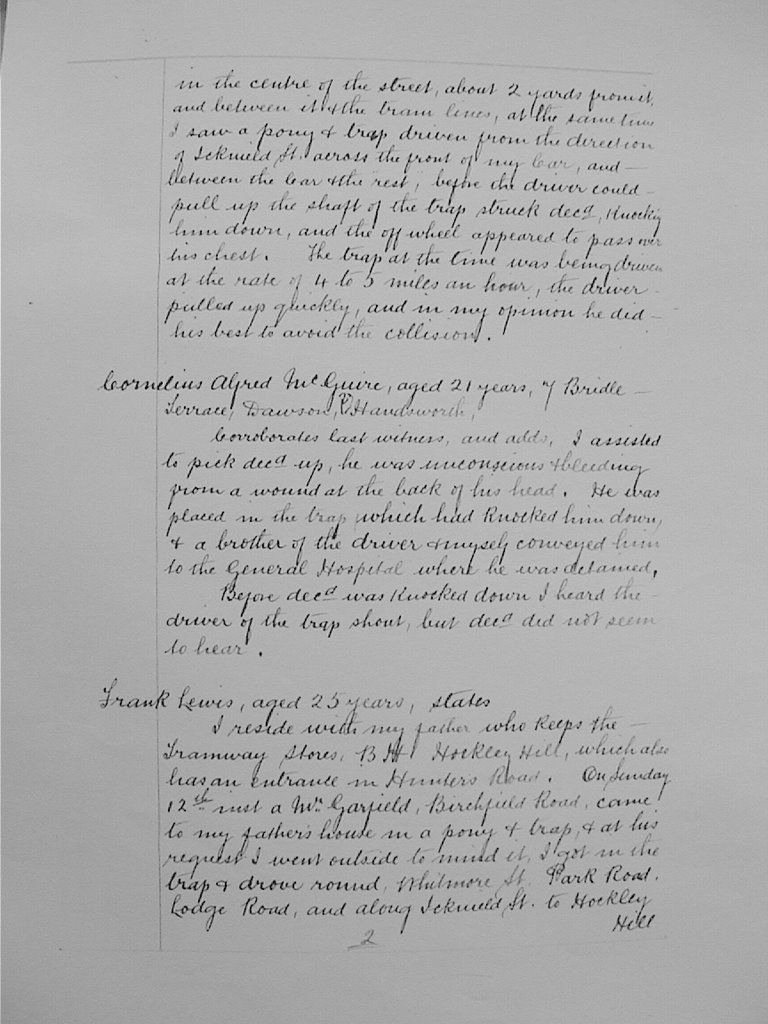 in the centre of the street, about 2 yards from it,
and between it & the tram lines, at the same time
I saw a pony & trap driven from the direction
of Icknield St. across the front of my Car, and —
between the Car & the rest, before the driver could —
pull up the shaft of the trap struck decd, Knocking
him down, and the off wheel appeared to pass over
his chest. The trap at the time was being driven
at the rate of 4 to 5 miles an hour, the driver
pulled up quickly, and in my opinion he did —
his best to avoid the collision.
Cornelius Alfred McGuire, aged 21 years, 7 Bridle —
Terrace, Dawson, Handsworth,
Corroborates last witness, and adds, I assisted
to pick decd up, he was unconscious & bleeding
from a wound at the back of his head. He was
placed in the trap which had Knocked him down,
& a brother of the driver & myself conveyed him
to the General Hospital where he was detained,
Before decd was Knocked down I heard the —
driver of the trap shout, but decd did not seem
to hear.
Frank Lewis, aged 25 years, states
I reside with my father who Keeps the —
Tramway Stores, B.H. Hockley Hill, which also
has an entrance in Hunters Road. On Sunday
12th inst a Mr. Garfield, Birchfield Road, came
to my father's house in a pony & trap, & at his
request I went outside to mind it, I got in the
trap & drove round, Whitmore St. Park Road.
Lodge Road, and along Icknield St. to Hockley
Hill
2